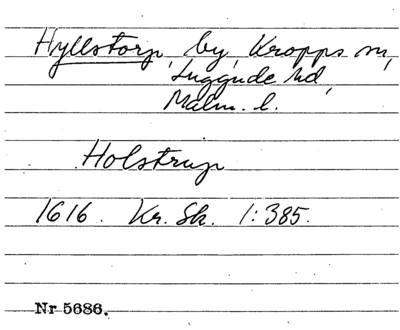 Hyllstorp, by, Kropps sn,
Luggude hd,
Malm. l.
Holstrup
1616. Kr. Sk. 1:385.
Nr 5686.